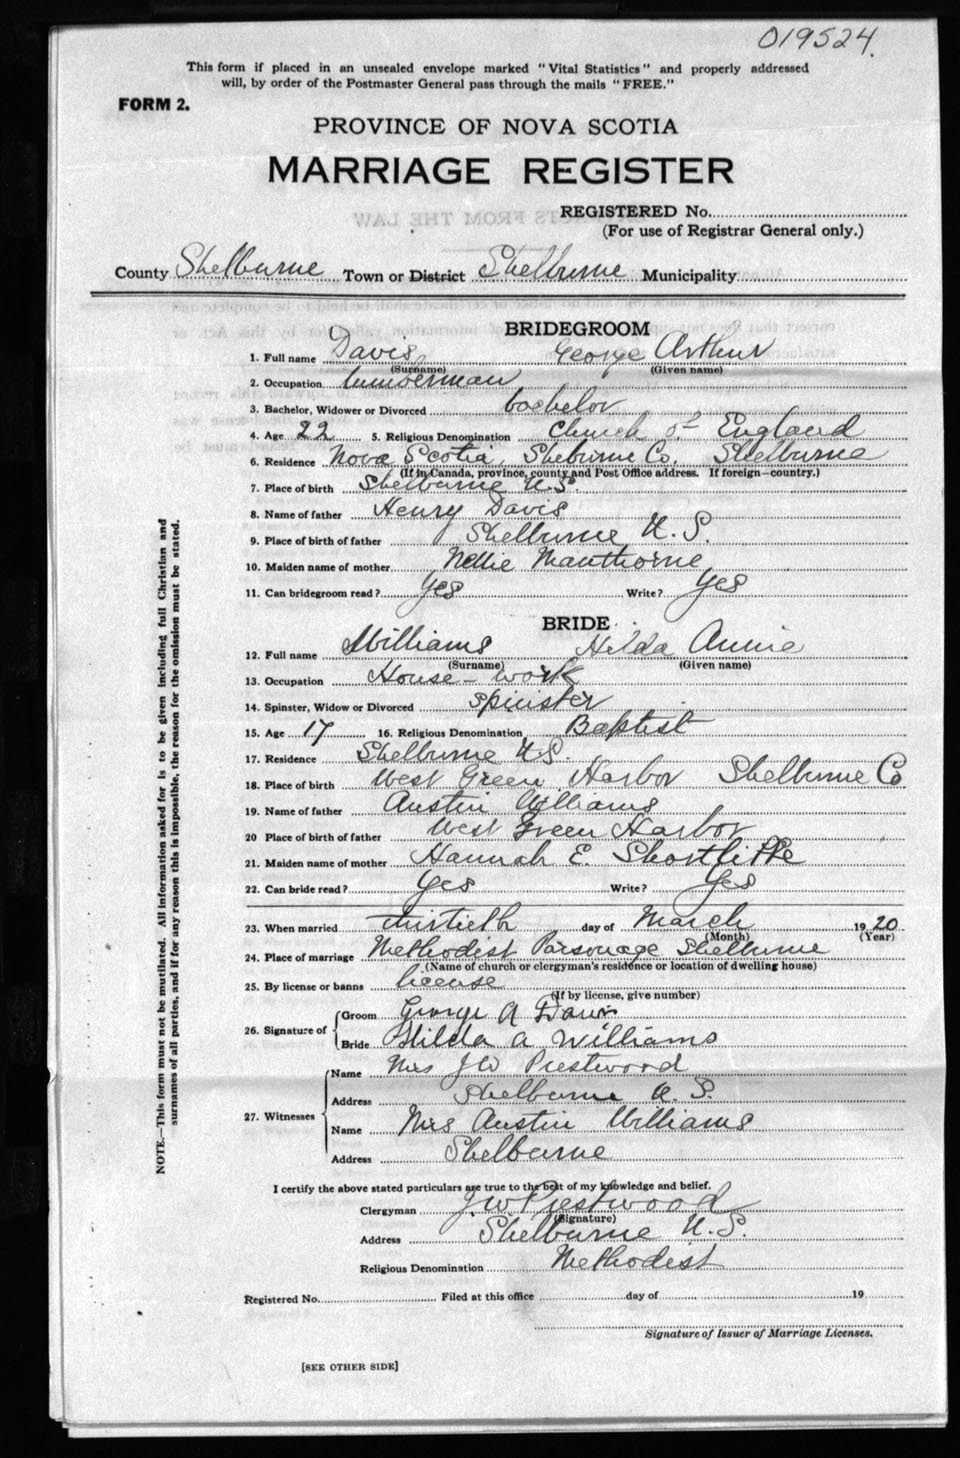 019524.
This form if placed in an unsealed envelope marked "Vital Statistics" and properly addressed
will, by order of the Postmaster General pass through the mails "FREE."
FORM 2.
PROVINCE OF NOVA SCOTIA
MARRIAGE REGISTER
REGISTERED No.
(For use of Registrar General only.)
County Shelburne Town or District Shelburne Municipality
BRIDEGROOM
1. Full name Davis, George Arthur
(Surname) (Given name)
2. Occupation Lumberman
3. Bachelor, Widower or Divorced bachelor
4. Age 22 5. Religious Denomination Church of England
6. Residence Nova Scotia, Sheburne Co. Shelburne
(If in Canada, province, county and Post Office address. If foreign—country.)
7. Place of birth Shelburne N.S.
8. Name of father Henry Davis
9. Place of birth of father Shelburne N.S.
10. Maiden name of mother Nellie Manthorne
11. Can bridegroom read? Yes Write? Yes
BRIDE
12. Full name Williams Hilda Annie
(Surname) (Given name)
13. Occupation House-work
14. Spinster, Widow or Divorced spinster
15. Age 17 16. Religious Denomination Baptist
17. Residence Shelburne N.S.
18. Place of birth West Green Harbor Shelburne Co
19. Name of father Austin Williams
20 Place of birth of father West Green Harbor
21. Maiden name of mother Hannah E. Shortliffe
22. Can bride read? Yes Write? Yes
23. When married thirtieth day of March 1920
(Month) (Year)
24. Place of marriage Methodist Parsonage Shelburne
(Name of church or clergyman's residence or location of dwelling house)
25. By license or banns license
(If by license, give number)
26. Signature of
Groom George A Davis
Bride Hilda A Williams
27. Witnesses
Name Mrs J W Prestwood
Address Shelburne N.S.
Name Mrs Austin Williams
Address Shelburne
I certify the above stated particulars are true to the best of my knowledge and belief.
Clergyman J W Prestwood
(Signature)
Address Shelburne N.S.
Religious Denomination Methodist
Registered No. Filed at this office day of 19
Signature of Issuer of Marriage Licenses.
[SEE OTHER SIDE]
NOTE.—This form must not be mutilated. All information asked for is to be given including full Christian and
surnames of all parties, and if for any reason this is impossible, the reason for the omission must be stated.